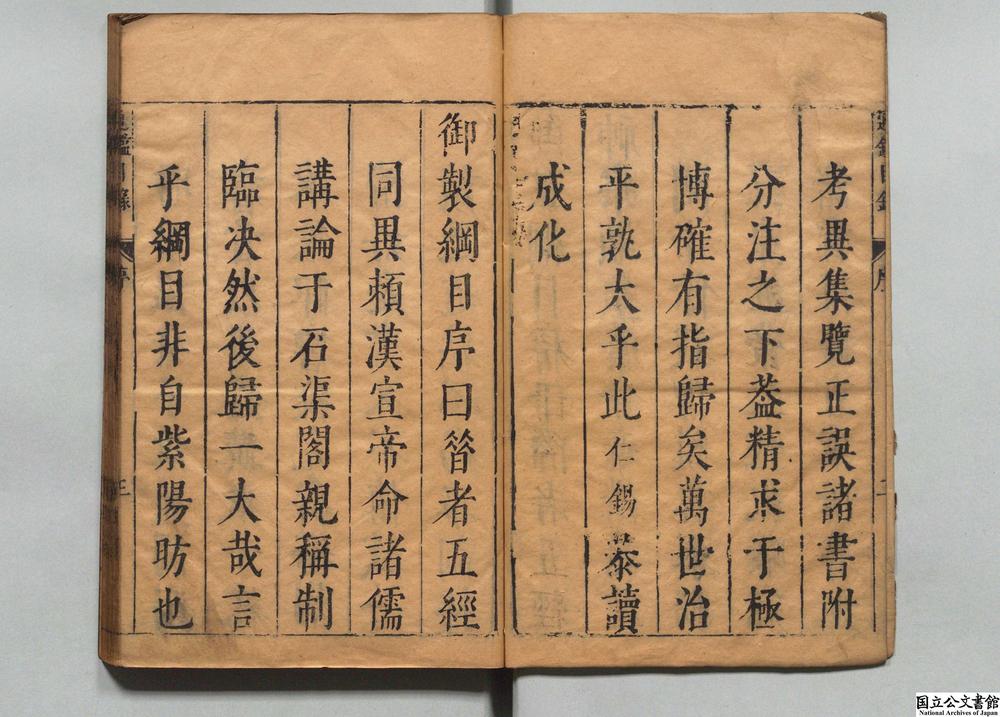 考異集覽正誤諸書附
分注之下葢精求于極
博確有指歸矣萬世治
平孰大乎此仁錫忝讀
成化
御製綱目序曰昝者五經
同異頼漢宣帝命諸儒
講論于石渠閣親稱制
臨决然後歸一大哉言
乎綱目非自紫陽昉也
序
序
国立公文書館
National Archives of Japan